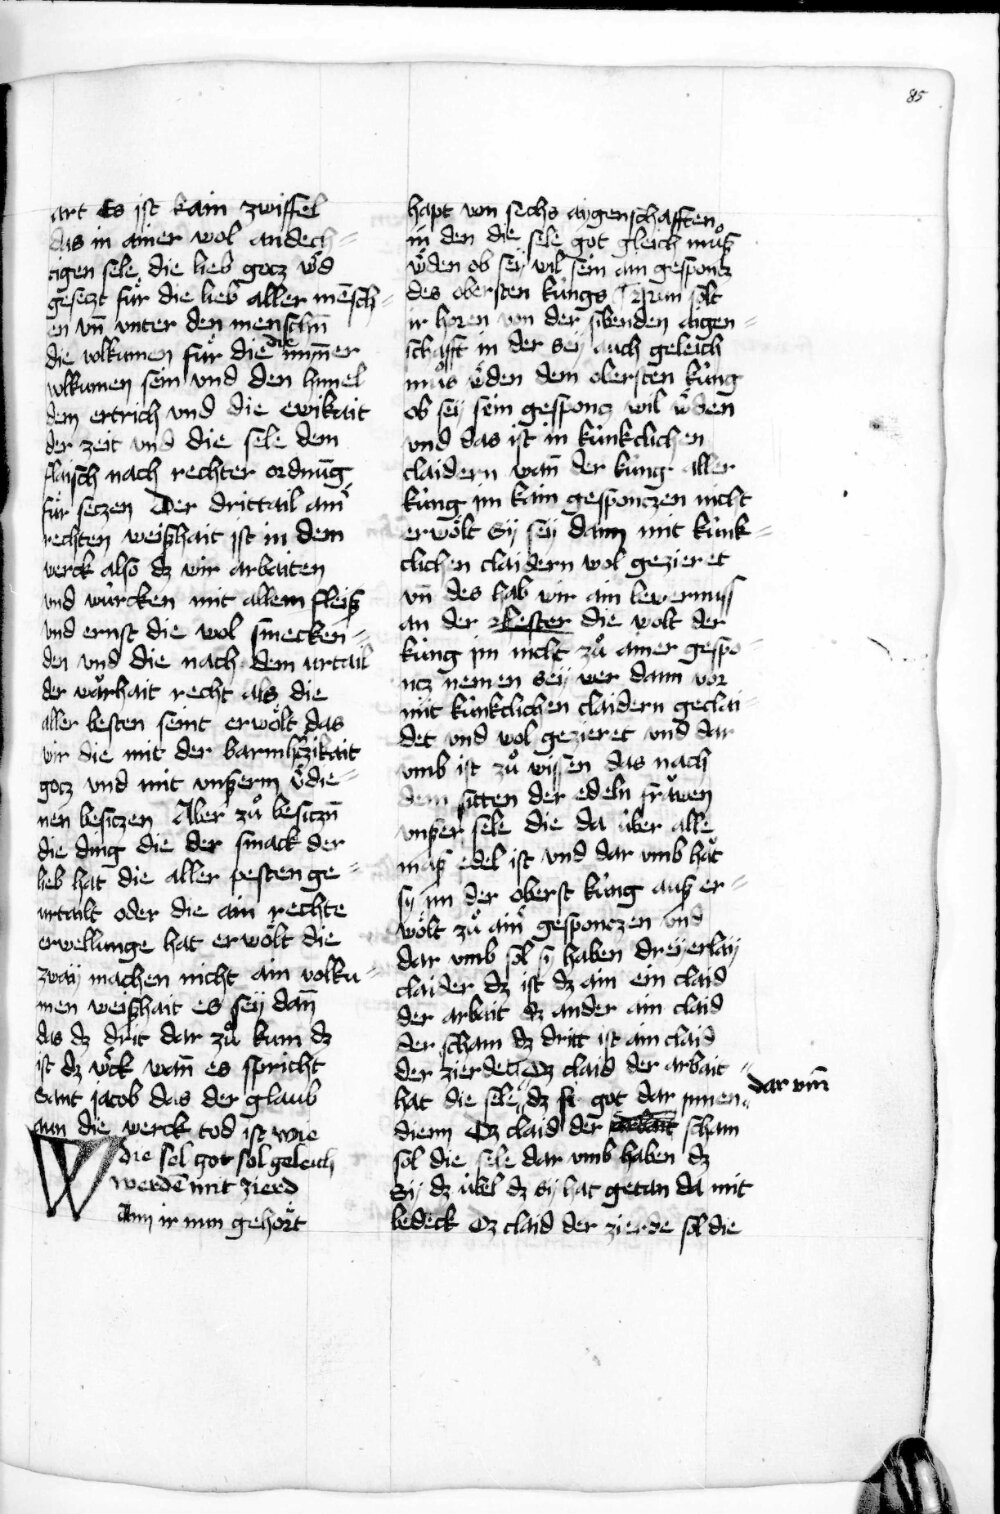 85
art Es ist kain zwiffel
das in ainer wol andech=
tigen sele die lieb gotz wͤd
gesetzt fúr die lieb aller mēsch=
en vn̄ vnter den menschn̄
die volkumen fúr die die ym̄er
volkumen sein vnd den himel
dem ertrich vnd die ewikait
der zeit vnd die sele dem
flaisch nach rechter ordnūg
fúr setzen Der drittail ainͬ
rechten weißhait ist in dem
werck also dz wir arbaiten
vnd wúrcken mit allem fleiß
vnd ernst die wol smecken=
den vnd die nach dem urtail
der wǎrhait recht als die
aller besten seint erwoͤlt das
wir die mit der barmhͤtzikait
gotz vnd mit vnßerm vͤdie=
nen besitzen Aber zuͦ besitzn̄
die ding die der smack der
lieb hat die aller pesten ge=
urtailt oder die ain rechte
erwellunge hat erwoͤlt die
zway machen nicht ain volku=
men weißhait es sey dan̄
das dz drit dar zuͦ kum dz
ist dz wͤck wan̄ es spricht
Sant jacob das der glaub
ann die werck tod ist wie
die sel got sol geleich
werdē mit zierd
Wann ir nun gehoͤrt
hapt von sechs aygenschafften
in den die sele got gleich muͦß
wͤden ob sey wil sein ain gespontz
des obersten kúngs Nun sólt
ir horen von der sibenden aigen=
schafft in der sey auch geleich
muͦs wͤden dem obersten kúng
ob sey sein gespontz wil wͤden
vnd das ist in kúnklichen
claidern wan̄ der kúng aller
kúng im kain gespontzen nicht
erwoͤlt Sy sey dann mit kúnk=
clichen claidern wol gezieret
vn̄ des hab wir ain bewernuß
an der Hester die wolt der
kúng im nicht zuͦ ainer gespo=
ntz nemen sey wer dann vor
mit kúnklichen claidern geclai=
det vnd wol gezieret vnd dar
vmb ist zuͦ wissen das nach
dem sitten der edeln frǔwen
vnßer sele die da úber alle
maß edel ist vnd dar vmb hǎt
sy im der oberst kúng auß er=
woͤlt zuͦ ainͬ gespontzen vnd
dar vmb sol sy haben dreyerlay
claider dz ist dz ain ein claid
der arbait dz ander ain claid
der scham dz dritt ist ain claid
der zierde Dz claid der arbait
hat die sele dz si got dar vm̄ innen
dienn Dz claid der scham
sol die sele dar vmb haben dz
Sy dz úbel dz sy hat getan da mit
bedeck Dz claid der zierde sol die